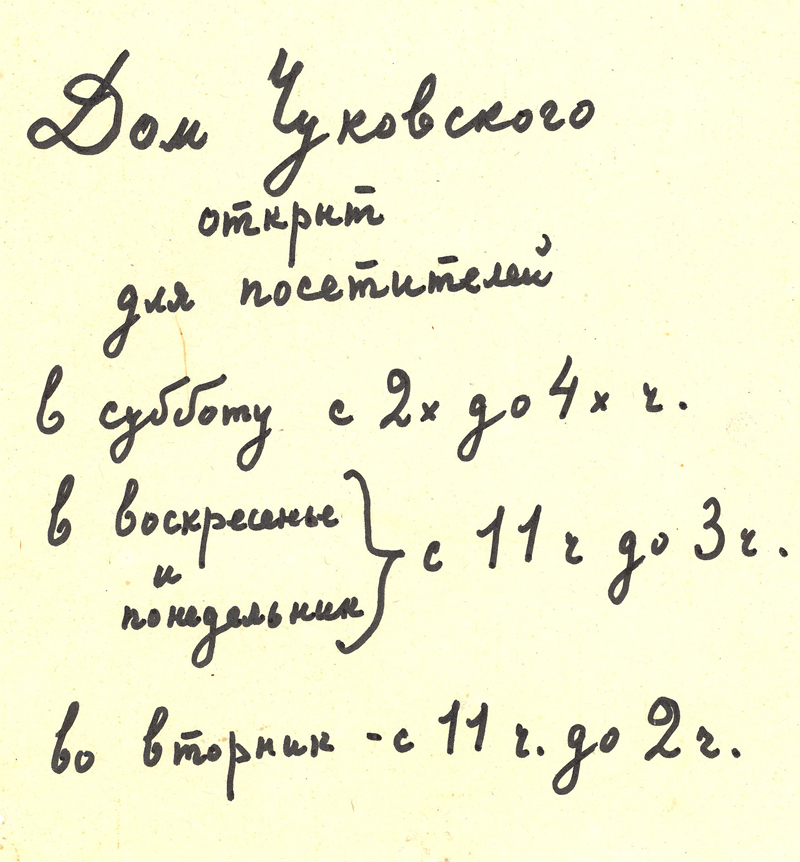 Дом Чуковского
открыт
для посетителей
в субботу с 2х до 4х ч.
в воскресенье
и
понедельник
с 11 ч до 3 ч.
во вторник - с 11 ч. до 2 ч.